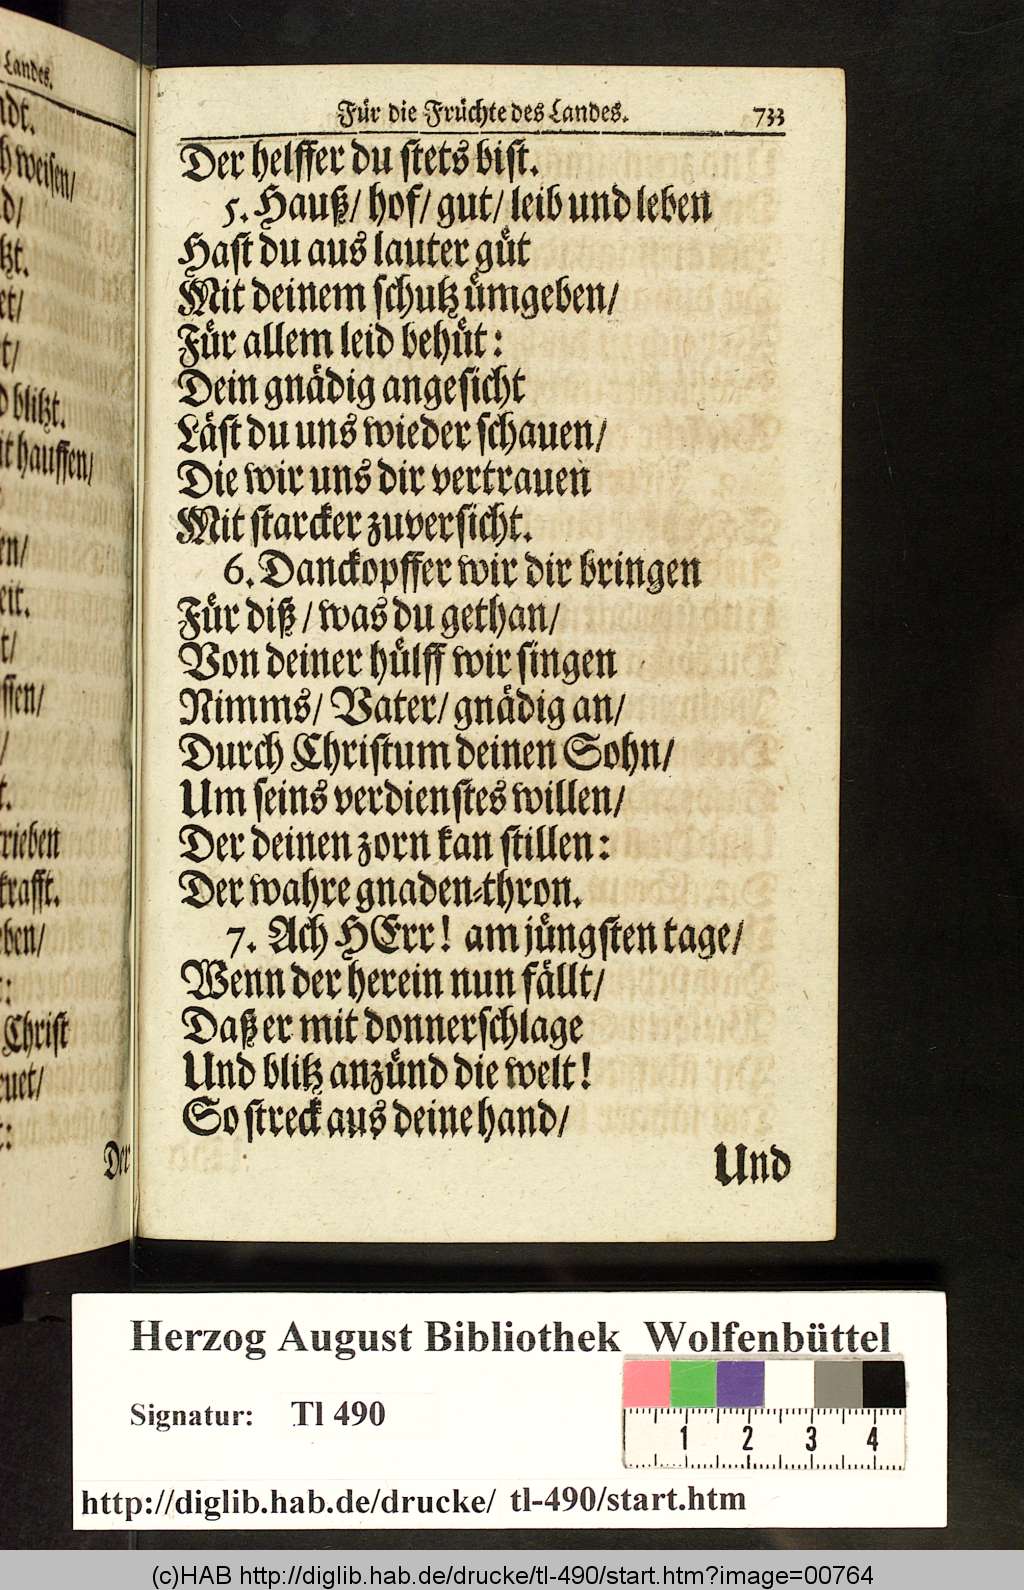 Landes.
weisen/
blitzt.
hauffen/
krafft.
Christ
Der
Für die Früchte des Landes. 733
Der helffer du stets bist.
5. Hauß/ hof/ gut/ leib und leben
Hast du aus lauter güt
Mit deinem schutz ümgeben/
Für allem leid behüt:
Dein gnädig angesicht
Läst du uns wieder schauen/
Die wir uns dir vertrauen
Mit starcker zuversicht.
6. Danckopffer wir dir bringen
Für diß/ was du gethan/
Von deiner hülff wir singen
Nimms/ Vater/ gnädig an/
Durch Christum deinen Sohn/
Um seins verdienstes willen/
Der deinen zorn kan stillen:
Der wahre gnaden-thron.
7. Ach HErr! am jüngsten tage/
Wenn der herein nun fällt/
Daß er mit donnerschlage
Und blitz anzünd die welt!
So streck aus deine hand/
Und
Herzog August Bibliothek Wolfenbüttel
Signatur: Tl 490
1 2 3 4
http://diglib.hab.de/drucke/ tl-490/start.htm
(c)HAB http://diglib.hab.de/drucke/tl-490/start.htm?image=00764